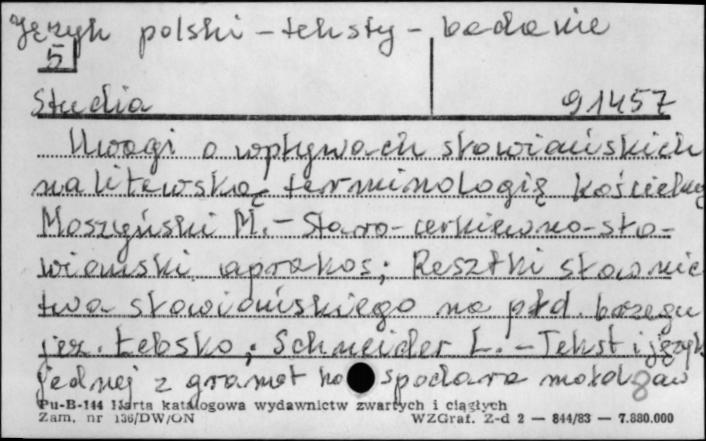 Język polski – teksty – badanie
5
Studia 91457
Uwagi o wpływach słowiańskich
na litewską terminologię kościelną
Moszyński M. – Staro-cerkiewno-sło-
wiański aprakos; Resztki słownic
twa słowińskiego na płd. brzegu
jez. Łebsko; Schneider L. – Tekst i język
jednej z gramot hospodara mołdaw
Pu-B-144 Karta katalogowa wydawnictw zwartych i ciągłych
Zam. nr 136/DW/ON WZGraf. Z-d 2 — 844/83 — 7.880.000